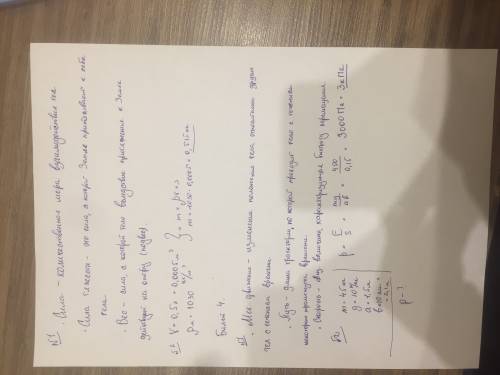 №1
• Сила – количественная мера взаимодействия тел
• Сила тяжести – это сила, с которой Земля притягивает к себе
тела.
• Вес – сила, с которой тело вследствие притяжения к Земле
действует на опору (подвес)
V = 0,5 л = 0,0005 м³ } = m = ρV =>
ρм = 1030 кг/м³ m = 1030 · 0,0005 = 0,515 кг
Билет 4.
№1
• Мех. движение – изменение положения тела относительно других
тел с течением времени.
• Путь – длина траектории, по которой проходит тело с течением
некоторого промежутка времени.
• Скорость – физ. величина, характеризующая быстроту перемещения.
№2
m = 45 кг
g = 10 Н/кг
a = 1,5 м
p – ?
p = F/S = mg/ab = 450/0,15 = 3000 Па = 3 кПа